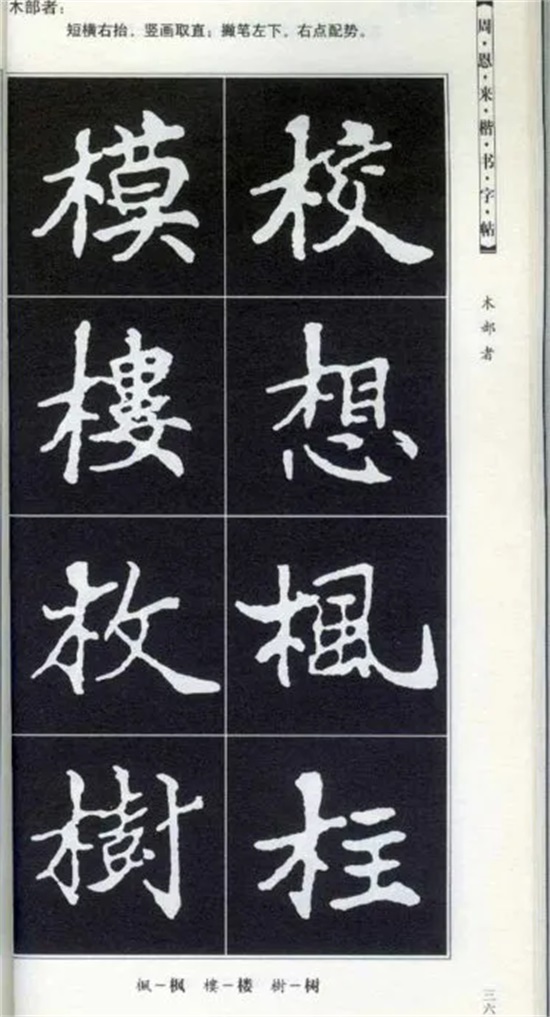 木部者：
短横右抬，竖画取直；撇笔左下，右点配势。
【周·恩·来·楷·书·字·帖】
木部者
模 校
樓 想
枚 楓
樹 柱
楓－枫 樓－楼 樹－树
三六